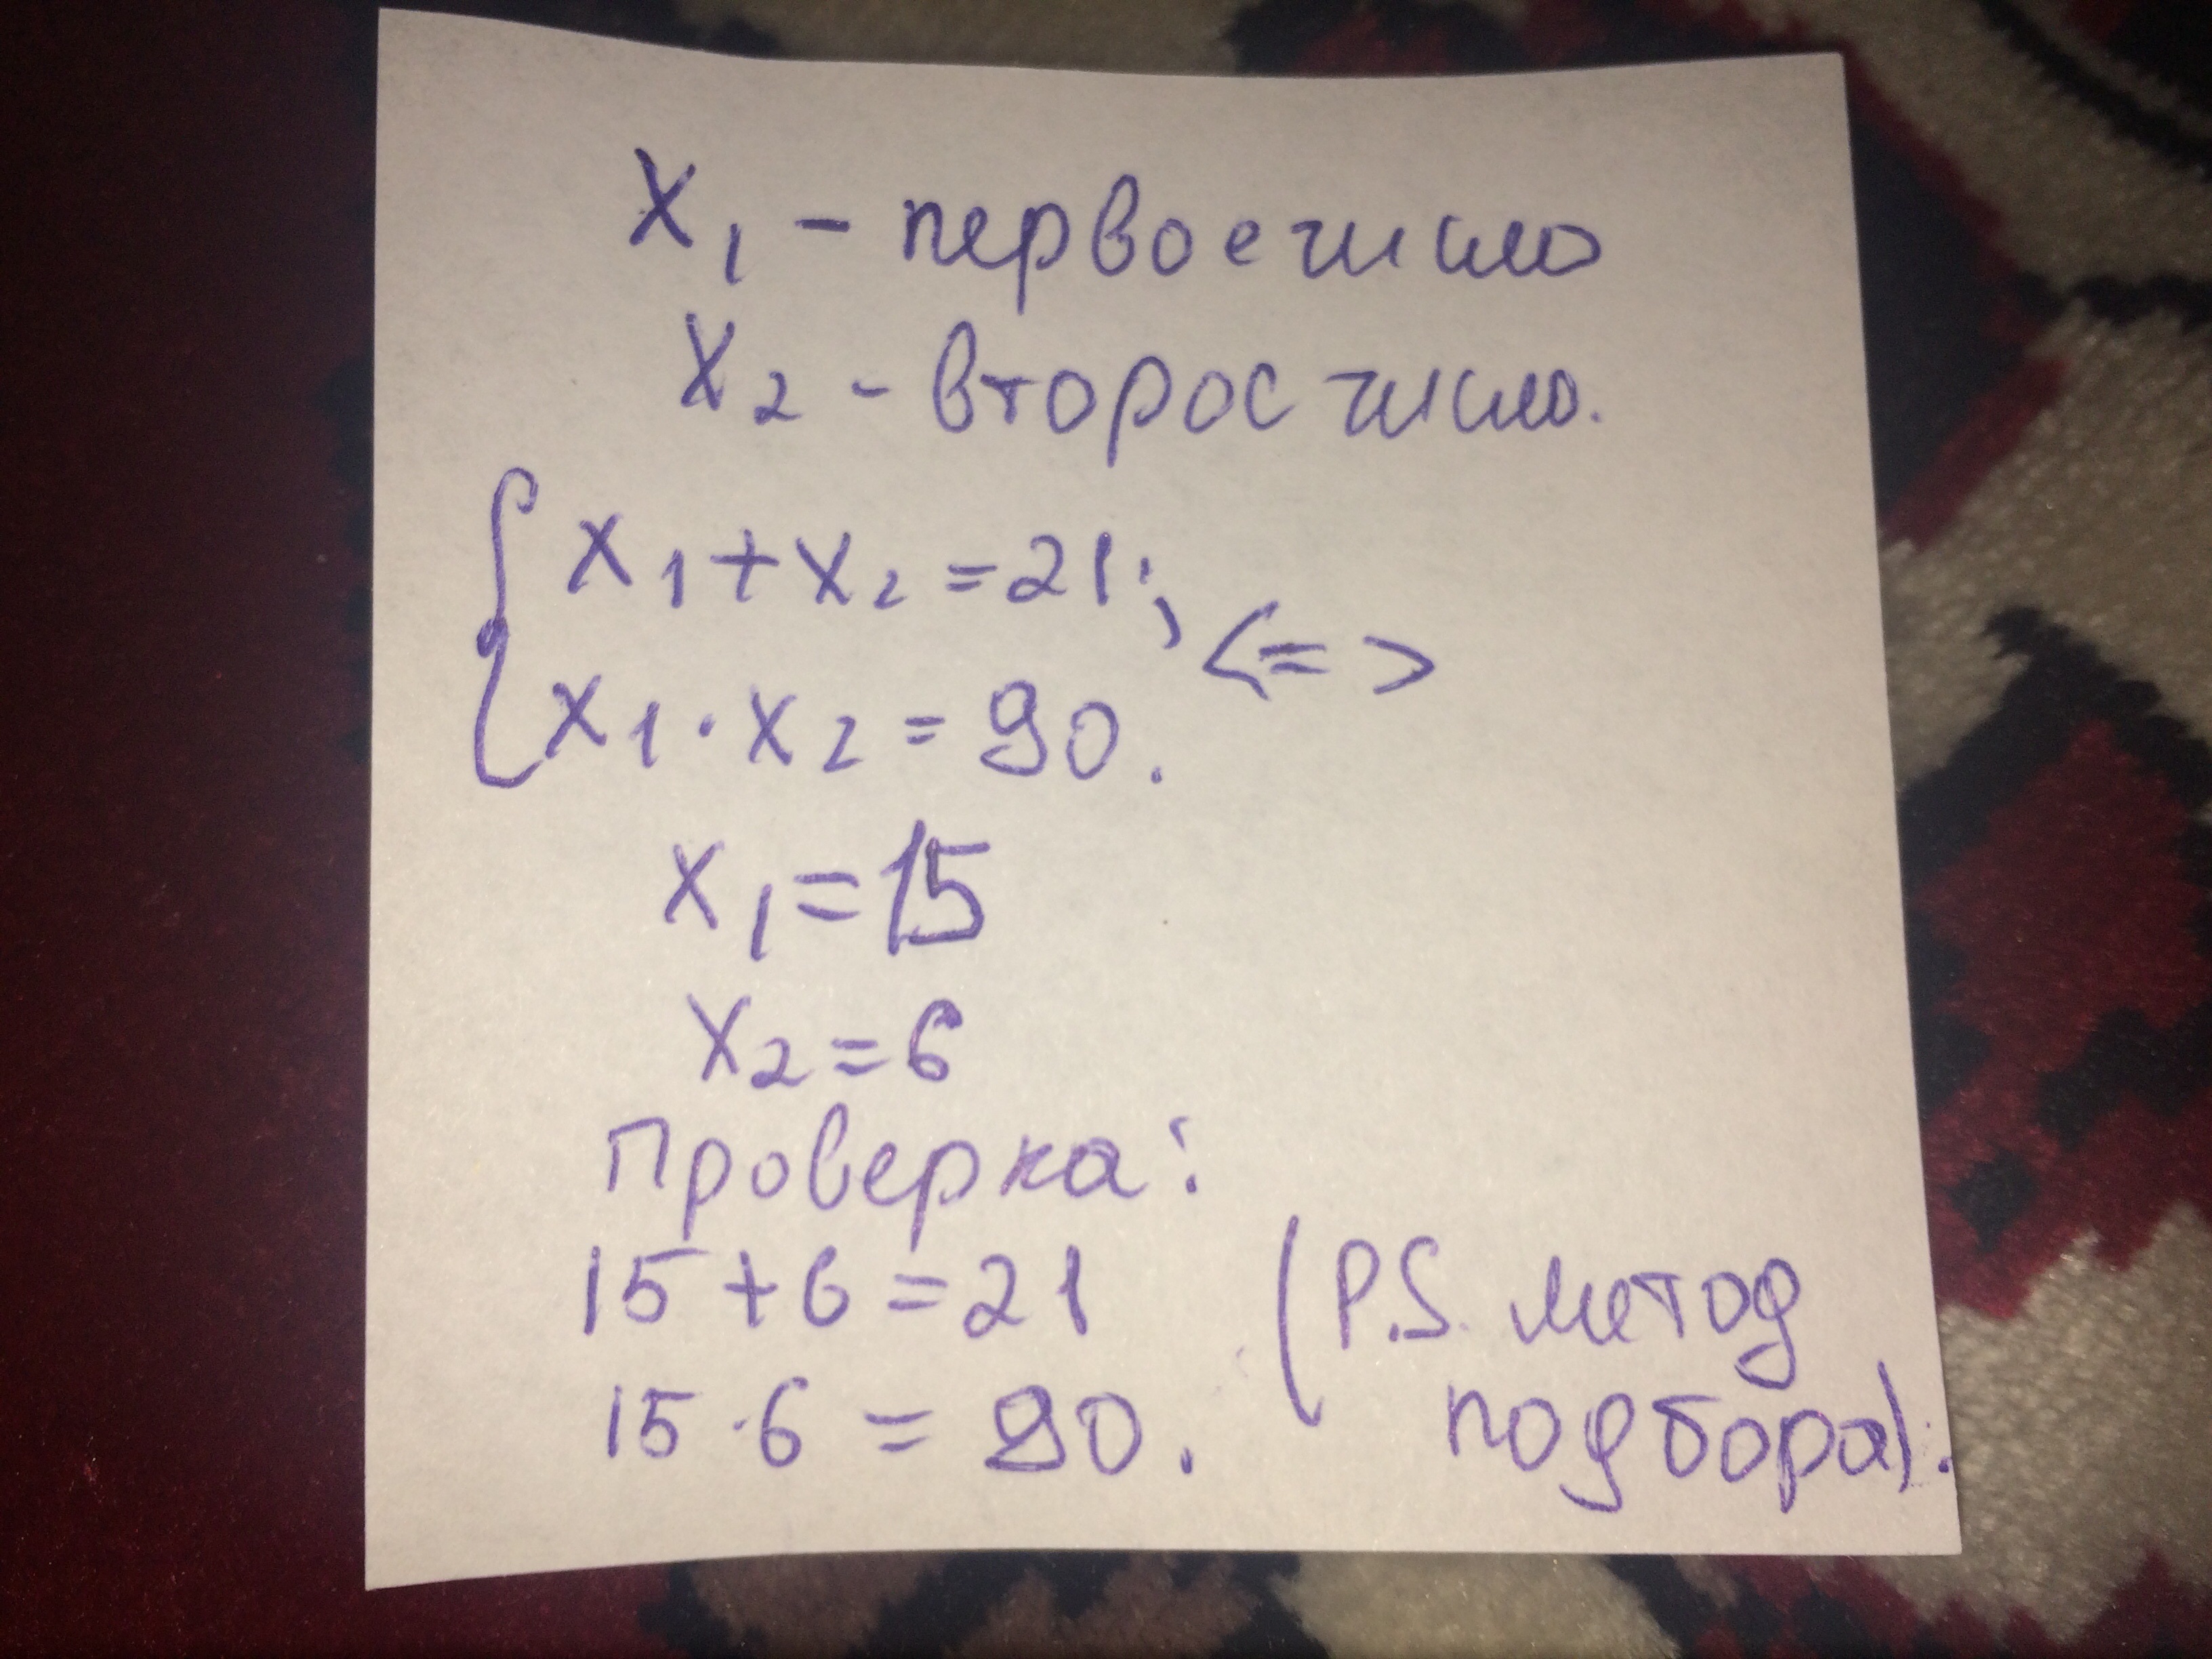 x₁ - первое число
x₂ - второе число.
{ x₁ + x₂ = 21; <=>
x₁ · x₂ = 90.
x₁ = 15
x₂ = 6
Проверка:
15 + 6 = 21
15 · 6 = 90.
(P.S. метод
подбора).